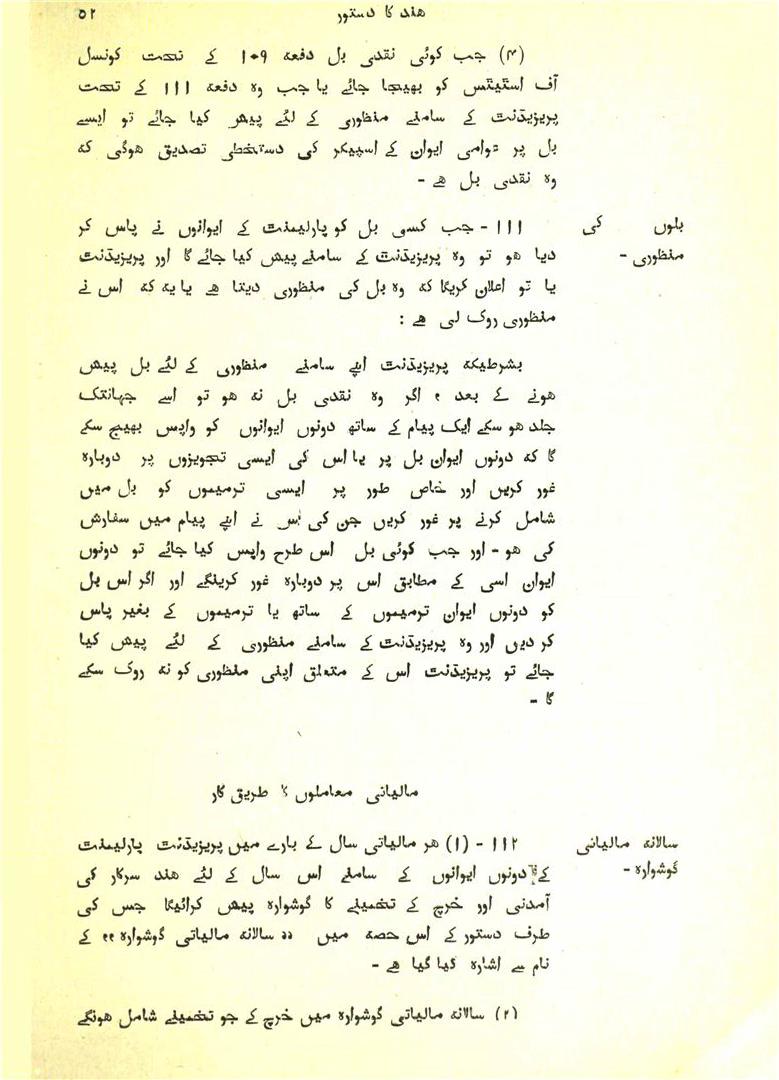 ھند کا دستور
۵۲
(۴) جب کوئی نقدی بل دفعہ ۱۰۹ کے تحت کونسل
آف اسٹیٹس کو بھیجا جائے یا جب وہ دفعہ ۱۱۱ کے تحت
پریزیڈنٹ کے سامنے منظوری کے لئے پیش کیا جائے تو ایسے
بل پر عوامی ایوان کے اسپیکر کی دستخطی تصدیق ھوگی کہ
وہ نقدی بل ھے -
بلوں کی
منظوری -
۱۱۱ - جب کسی بل کو پارلیمنٹ کے ایوانوں نے پاس کر
دیا ھو تو وہ پریزیڈنٹ کے سامنے پیش کیا جائے گا اور پریزیڈنٹ
یا تو اعلان کریگا کہ وہ بل کی منظوری دیتا ھے یا یہ کہ اس نے
منظوری روک لی ھے :
بشرطیکہ پریزیڈنٹ اپنے سامنے منظوری کے لئے بل پیش
ھونے کے بعد ، اگر وہ نقدی بل نہ ھو تو اسے جہانتک
جلد ھو سکے ایک پیام کے ساتھ دونوں ایوانوں کو واپس بھیج سکے
گا کہ دونوں ایوان بل پر یا اس کی ایسی تجویزوں پر دوبارہ
غور کریں اور خاص طور پر ایسی ترمیموں کو بل میں
شامل کرنے پر غور کریں جن کی اس نے اپنے پیام میں سفارش
کی ھو - اور جب کوئی بل اس طرح واپس کیا جائے تو دونوں
ایوان اسی کے مطابق اس پر دوبارہ غور کرینگے اور اگر اس بل
کو دونوں ایوان ترمیموں کے ساتھ یا ترمیموں کے بغیر پاس
کر دیں اور وہ پریزیڈنٹ کے سامنے منظوری کے لئے پیش کیا
جائے تو پریزیڈنٹ اس کے متعلق اپنی منظوری کو نہ روک سکے
گا -
مالیاتی معاملوں کا طریق کار
سالانہ مالیاتی
گوشوارہ -
۱۱۲ - (۱) ھر مالیاتی سال کے بارے میں پریزیڈنٹ پارلیمنٹ
کے دونوں ایوانوں کے سامنے اس سال کے لئے ھند سرکار کی
آمدنی اور خرچ کے تخمینے کا گوشوارہ پیش کرائیگا جس کی
طرف دستور کے اس حصہ میں ,, سالانہ مالیاتی گوشوارہ ،، کے
نام سے اشارہ کیا گیا ھے -
(۲) سالانہ مالیاتی گوشوارہ میں خرچ کے جو تخمینے شامل ھونگے